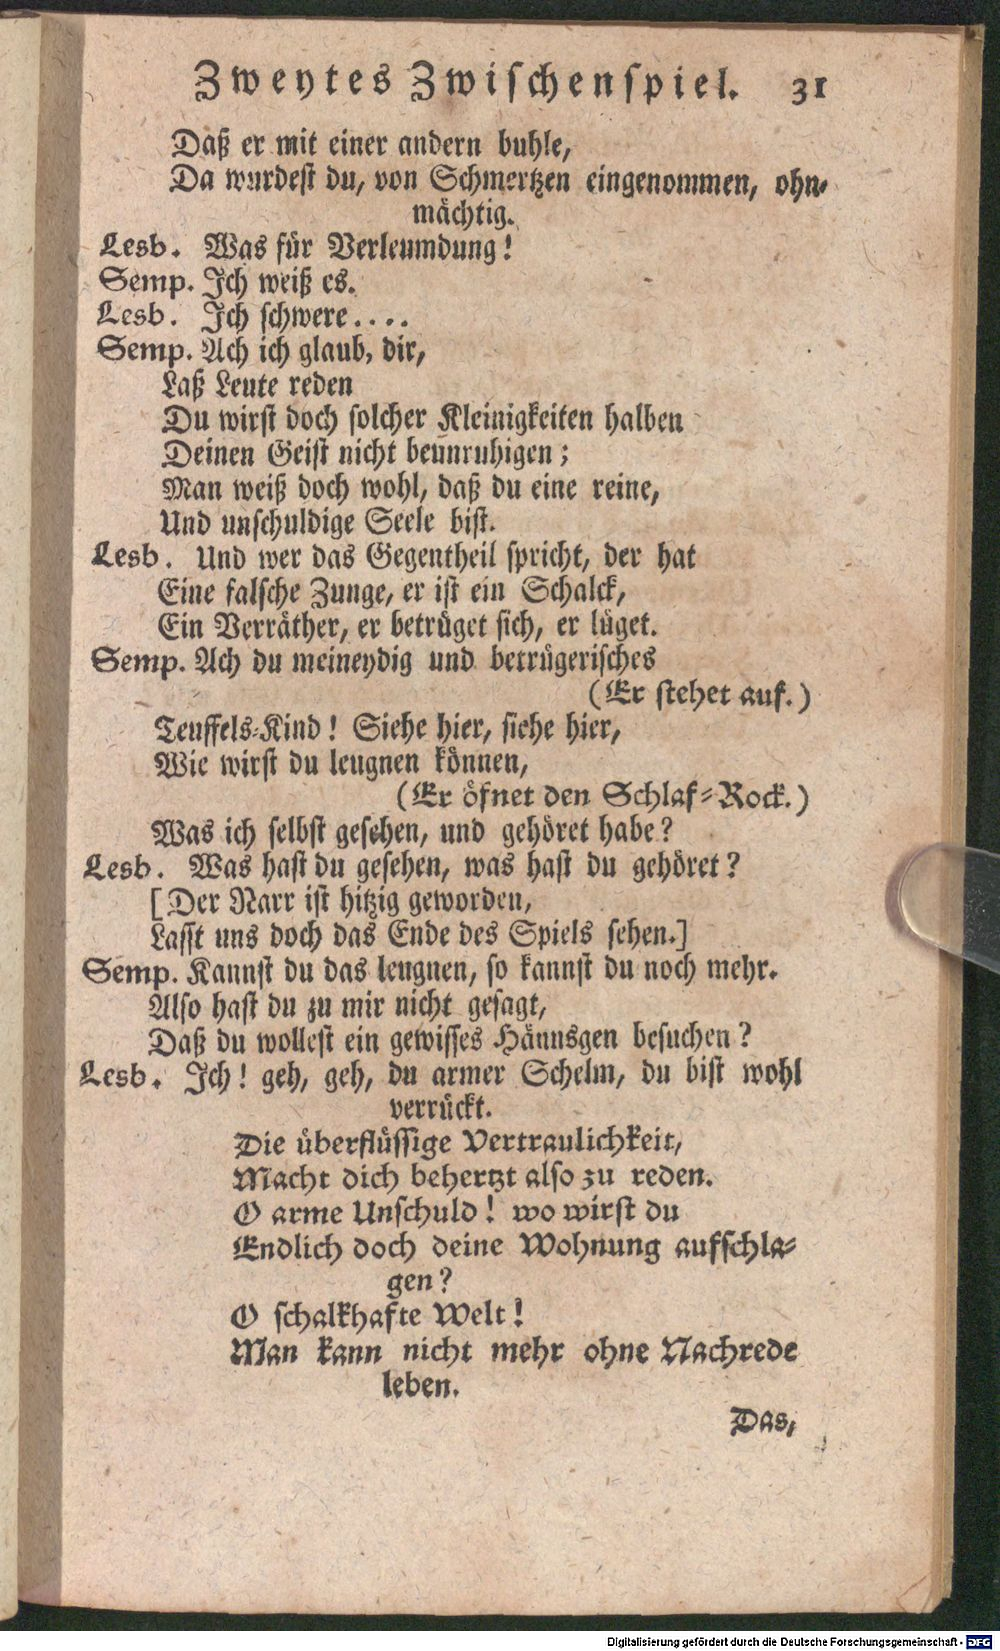 Zweytes Zwischenspiel. 31
Daß er mit einer andern buhle,
Da wurdest du, von Schmertzen eingenommen, ohn-
mächtig.
Lesb. Was für Verleumdung!
Semp. Ich weiß es.
Lesb. Ich schwere....
Semp. Ach ich glaub, dir,
Laß Leute reden
Du wirst doch solcher Kleinigkeiten halben
Deinen Geist nicht beunruhigen;
Man weiß doch wohl, daß du eine reine,
Und unschuldige Seele bist.
Lesb. Und wer das Gegentheil spricht, der hat
Eine falsche Zunge, er ist ein Schalck,
Ein Verräther, er betrüget sich, er lüget.
Semp. Ach du meineydig und betrügerisches
(Er stehet auf.)
Teuffels-Kind! Siehe hier, siehe hier,
Wie wirst du leugnen können,
(Er öfnet den Schlaf-Rock.)
Was ich selbst gesehen, und gehöret habe?
Lesb. Was hast du gesehen, was hast du gehöret?
[Der Narr ist hitzig geworden,
Lasst uns doch das Ende des Spiels sehen.]
Semp. Kannst du das leugnen, so kannst du noch mehr.
Also hast du zu mir nicht gesagt,
Daß du wollest ein gewisses Hännsgen besuchen?
Lesb. Ich! geh, geh, du armer Schelm, du bist wohl
verrückt.
Die überflüssige Vertraulichkeit,
Macht dich behertzt also zu reden.
O arme Unschuld! wo wirst du
Endlich doch deine Wohnung aufschla-
gen?
O schalkhafte Welt!
Man kann nicht mehr ohne Nachrede
leben.
Das,
Digitalisierung gefördert durch die Deutsche Forschungsgemeinschaft - DFG